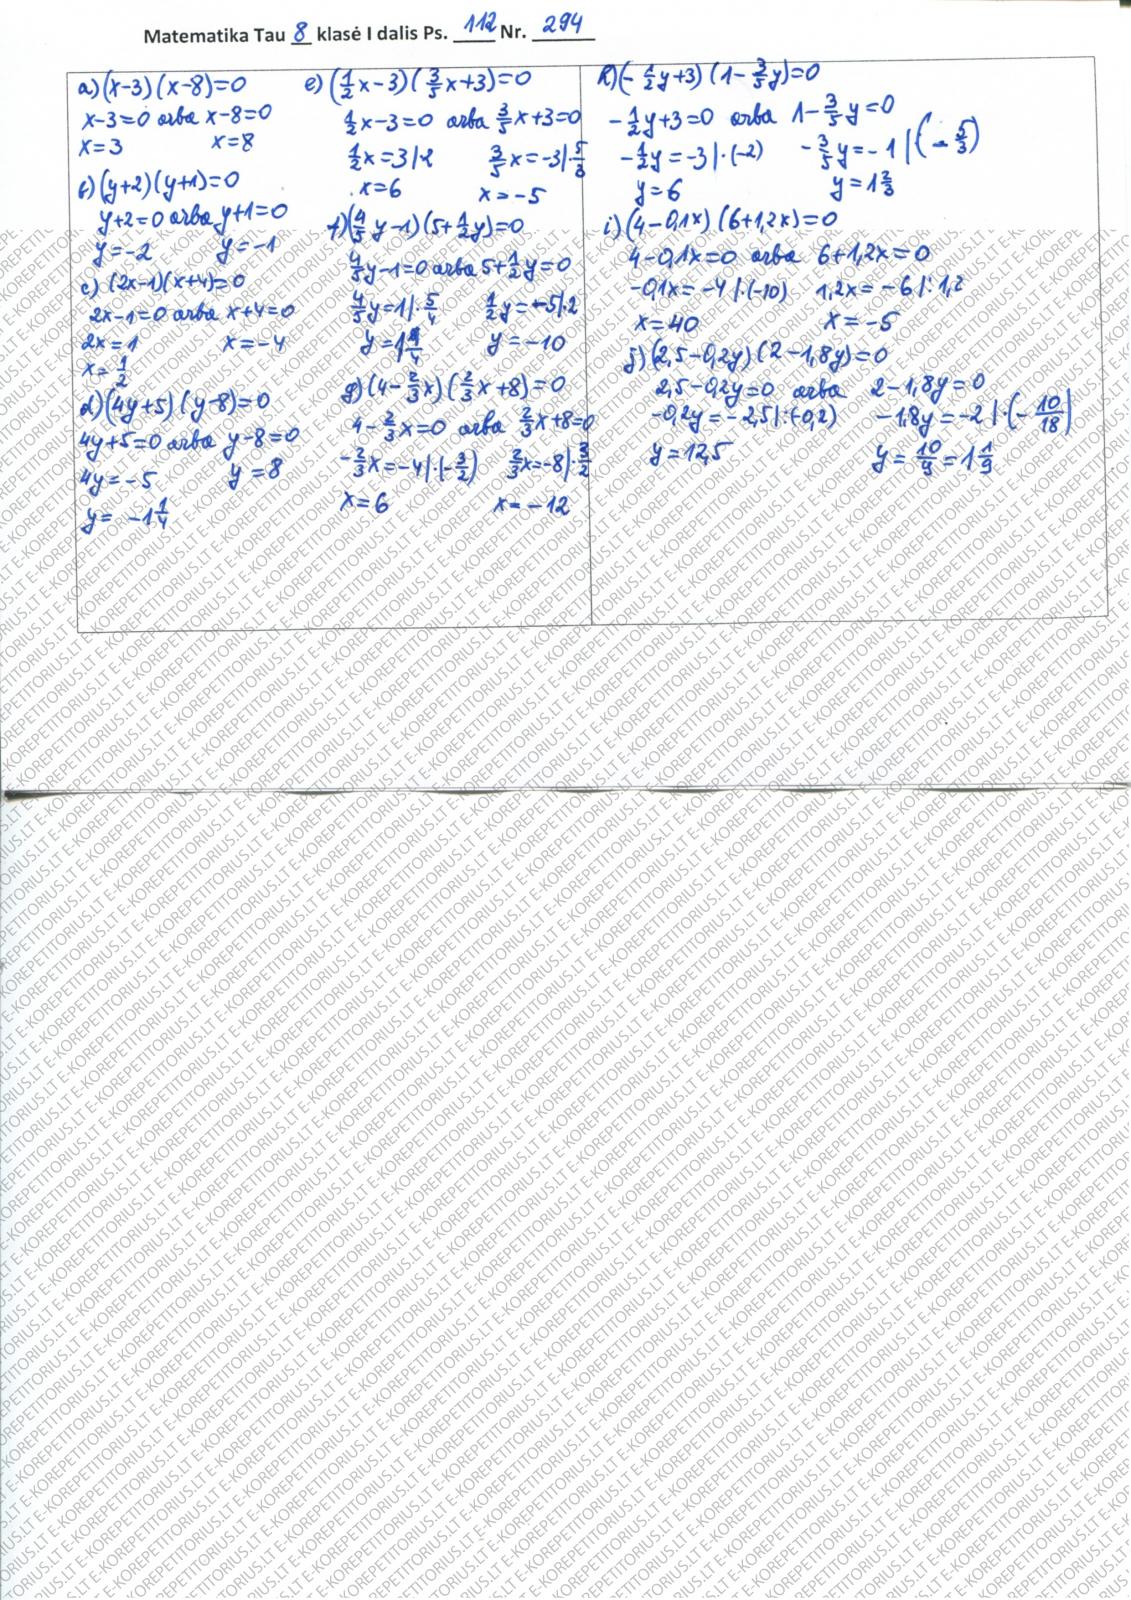 Matematika Tau 8 klasė I dalis Ps. 112 Nr. 294
a) (x-3)(x-8)=0
x-3=0 arba x-8=0
x=3 x=8
b) (y+2)(y+1)=0
y+2=0 arba y+1=0
y=-2 y=-1
c) (2x-1)(x+4)=0
2x-1=0 arba x+4=0
2x=1 x=-4
x=1/2
d) (4y+5)(y-8)=0
4y+5=0 arba y-8=0
4y=-5 y=8
y=-1 1/4
e) (1/2x-3)(3/5x+3)=0
1/2x-3=0 arba 3/5x+3=0
1/2x=3|·2 3/5x=-3|·5/3
x=6 x=-5
f) (4/5y-1)(5+1/2y)=0
4/5y-1=0 arba 5+1/2y=0
4/5y=1|·5/4 1/2y=-5|·2
y=1 1/4 y=-10
g) (4-2/3x)(2/3x+8)=0
4-2/3x=0 arba 2/3x+8=0
-2/3x=-4|·(-3/2) 2/3x=-8|·3/2
x=6 x=-12
h) (-1/2y+3)(1-3/5y)=0
-1/2y+3=0 arba 1-3/5y=0
-1/2y=-3|·(-2) -3/5y=-1|(-5/3)
y=6 y=1 2/3
i) (4-0,1x)(6+1,2x)=0
4-0,1x=0 arba 6+1,2x=0
-0,1x=-4|·(-10) 1,2x=-6|:1,2
x=40 x=-5
j) (2,5-0,2y)(2-1,8y)=0
2,5-0,2y=0 arba 2-1,8y=0
-0,2y=-2,5|:(-0,2) -1,8y=-2|·(-10/18)
y=12,5 y=10/9=1 1/9
E-KOREPETITORIUS.LT